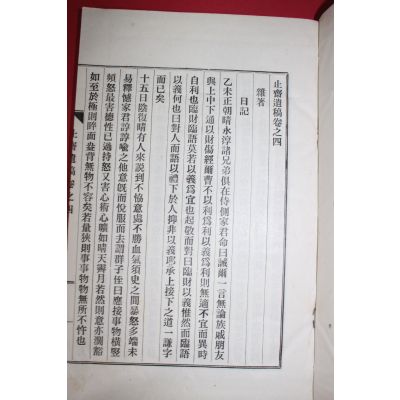 止齋遺稿卷之四
雜著
日記
乙未正朝晴永淳諸兄弟俱在侍側家君命曰誡爾一言無論族戚朋友
與上中下通以財傷經爾曹不以利爲利以義爲利則無適不宜而異時
自利也臨財臨語莫若以義爲宜也起敬而對曰臨財以義惟然而臨語
以義何也曰對人而語以禮下於人抑非以義耶承上接下之道一謙字
而已矣
十五日陰復晴有人來說到不協意處不勝血氣須臾之間暴怒多端未
易釋憾家君諄諄喩之他意旣而悅服而去謂群子侄曰應接事物橫竪
頻怒最害德性已過持怒又害心術心曠如晴天霽月若然則意亦濶豁
如至於極則睟面盎背無物不容矣若量狹則事事物物無所不忤也
止齋遺稿 卷之四